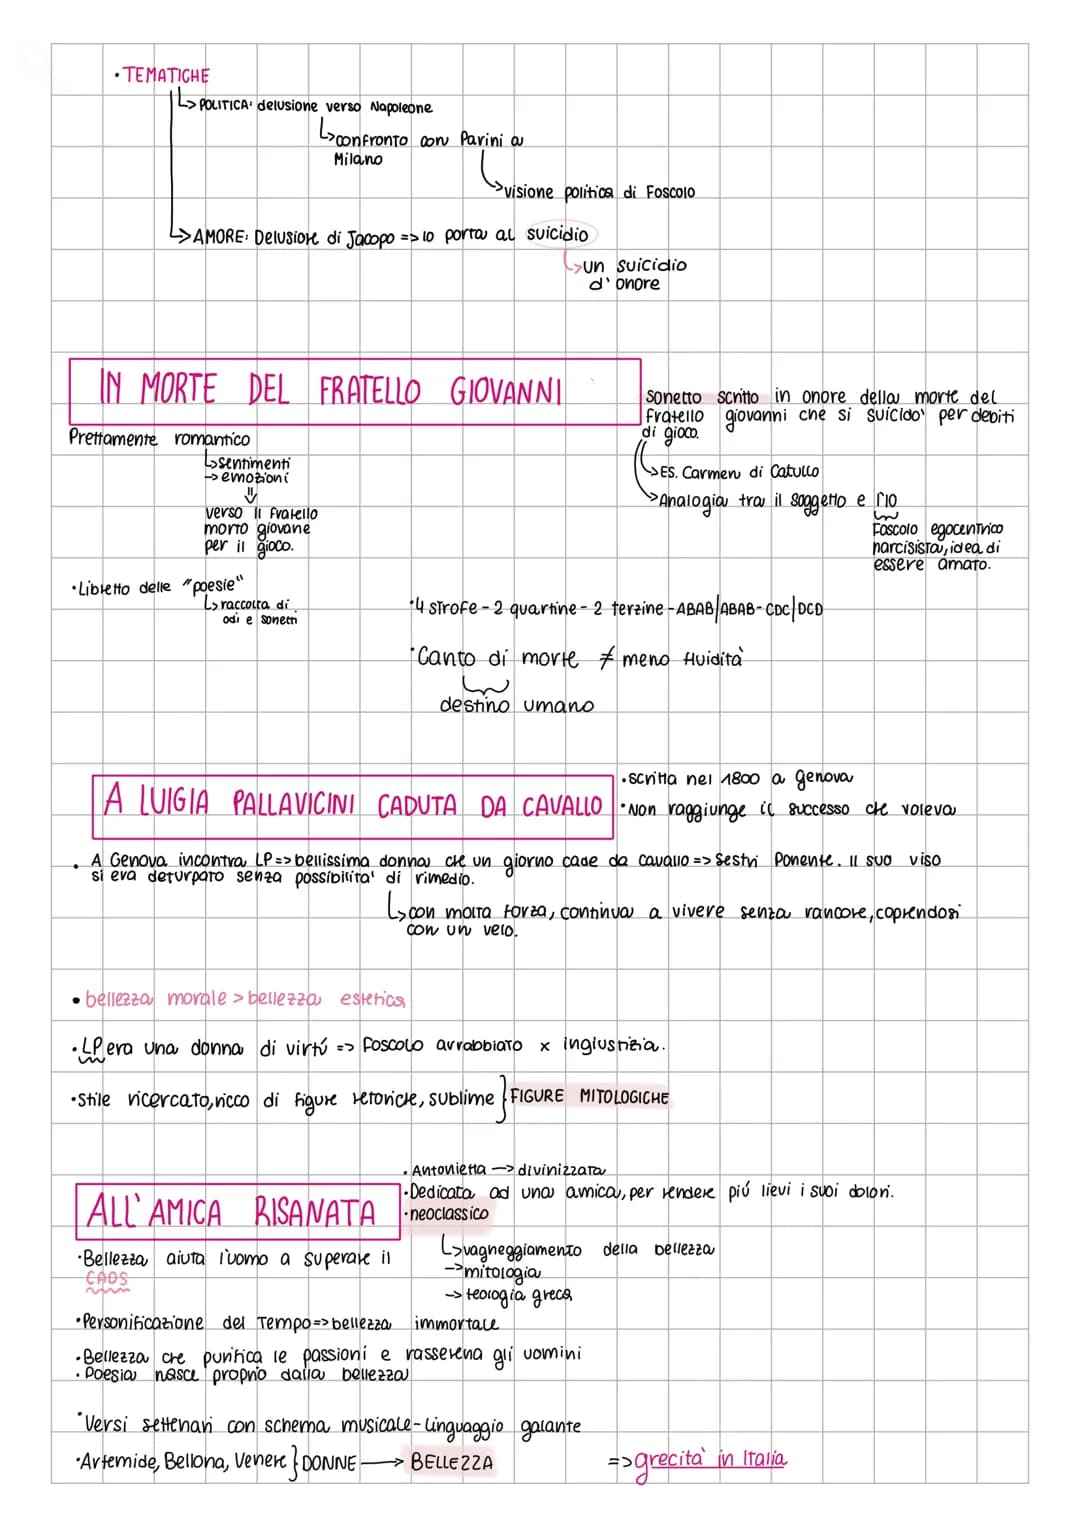 • TEMATICHE
↳ POLITICA: delusione verso Napoleone
↳ confronto con Parini a
Milano
↳ visione politica di Foscolo
↳ AMORE: Delusione di Jacopo => lo porta al suicidio
↳ un suicidio
d'onore
IN MORTE DEL FRATELLO GIOVANNI
sonetto scritto in onore della morte del
fratello giovanni che si suicido' per debiti
di gioco.
↳ ES. Carmen di Catullo
→ Analogia tra il soggetto e l'IO
Foscolo egocentrico
narcisista, idea di
essere amato.
Prettamente romantico
↳ sentimenti
→ emozioni
⇓
verso il fratello
morto giovane
per il gioco.
• Libretto delle "poesie"
↳ raccolta di
odi e sonetti
• 4 strofe - 2 quartine - 2 terzine - ABAB/ABAB - CDC/DCD
• Canto di morte ≠ meno fluidità
destino umano
A LUIGIA PALLAVICINI CADUTA DA CAVALLO
• scritta nel 1800 a genova
• Non raggiunge il successo che voleva
• A Genova incontra LP => bellissima donna che un giorno cade da cavallo => Sestri Ponente. Il suo viso
si era deturpato senza possibilita' di rimedio.
↳ con molta forza, continua a vivere senza rancore, coprendosi
con un velo.
• bellezza morale > bellezza estetica
• LP era una donna di virtú => Foscolo arrabbiato x ingiustizia.
• Stile ricercato, ricco di figure retoriche, sublime } FIGURE MITOLOGICHE
ALL'AMICA RISANATA
• Antonietta → divinizzata
• Dedicata ad una amica, per rendere piú lievi i suoi dolori.
• neoclassico
↳ vagneggiamento della bellezza
→ mitologia
→ teologia greca
• Bellezza aiuta l'uomo a superare il
CAOS
• Personificazione del Tempo => bellezza immortale
• Bellezza che purifica le passioni e rasserena gli uomini
• Poesia nasce proprio dalla bellezza
• Versi settenari con schema musicale - linguaggio galante
• Artemide, Bellona, Venere } DONNE → BELLEZZA => grecita' in Italia